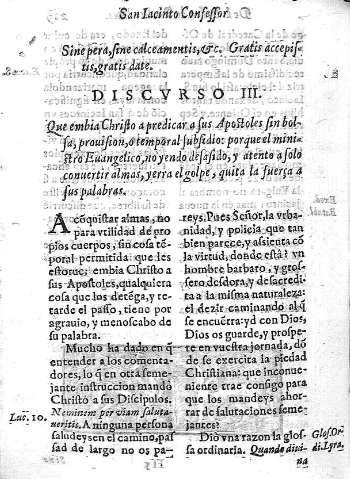 San Iacinto Confessor
Sine pera, sine calceamentis, &c. Gratis accepis-
tis, gratis date.
DISCVRSO III.
Que embia Christo a predicar a sus Apostoles sin bol-
sa, prouision, o temporal subsidio: porque el mini-
stro Euangelico, no yendo desasido, y atento a solo
conuertir almas, yerra el golpe, quita la fuerça a
sus palabras.
A cõquistar almas, no
para vtilidad de pro
pios cuerpos, sin cosa tẽ
poral permitida que les
estorue, embia Christo a
sus Apostoles, qualquiera
cosa que los detẽga, y re-
tarde el passo, tiene por
agrauio, y menoscabo de
su palabra.
Mucho ha dado en q̃
entender a los comenta-
dores, lo q̃ en otra seme-
jante instruccion mandò
Christo a sus Discipolos.
Luc. 10.
Neminem per viam saluta-
ueritis. A ninguna persona
saludeys en el camino, pas
sad de largo no os pa-
reys. Pues Señor, la vrba-
nidad, y policia que tan
bien parece, y assienta cõ
la virtud, donde està? vn
hombre barbaro, y gros-
sero desdora, y desacredi-
ta a la misma naturaleza:
el dezir caminando al q̃
se encuẽtra: yd con Dios,
Dios os guarde, y prospe-
re en vuestra jornada, dõ
de se exercita la piedad
Christiana: que inconue-
niente trae consigo para
que los mandeys ahor-
rar de salutaciones seme-
jantes?
Dio vna razon la glos-
sa ordinaria. Quando diui-
Glos. Or-
di. Lyra.
na